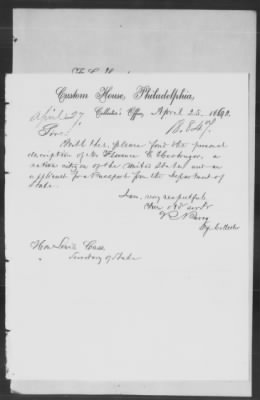 Custom House, Philadelphia,
Collector's Office, April 25, 1860.
April 27
Sir:
With this, please find the personal
description of Mr Florence
a native citizen of the United States and an
applicant for a Passport from the Department of
State.
I am, very respectfully
Your obt servt
Dy. Collector
Hon Lewis Cass
Secretary of State